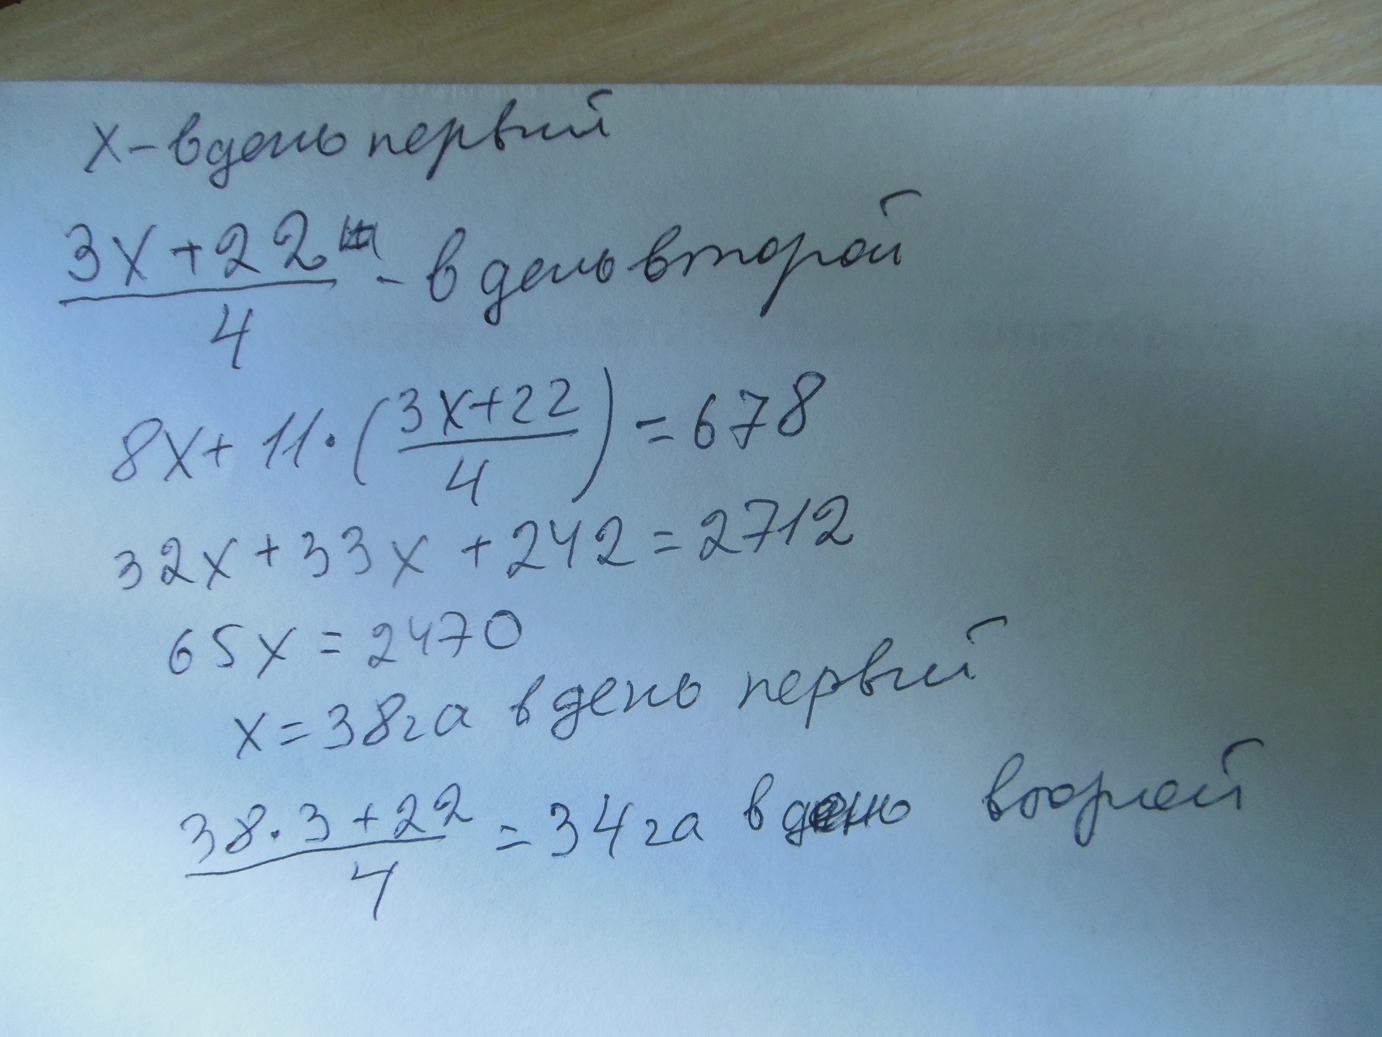 x – в день первый
(3x + 22)/4 - в день второй
8x + 11 · ((3x+22)/4) = 678
32x + 33x + 242 = 2712
65x = 2470
x = 38га в день первый
(38 · 3 + 22)/4 = 34га в день второй